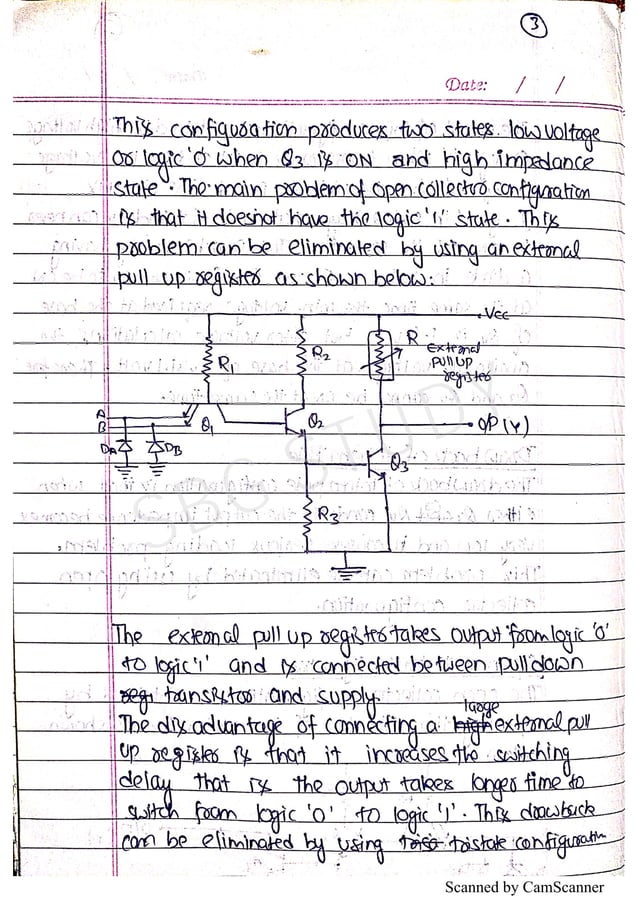 3
Date: / /
This configuration produces two states. low voltage
or logic '0' when Q3 is ON and high impedance
state. The main problem of open collector configuration
is that it doesnot have the logic '1' state. This
problem can be eliminated by using an external
pull up register as shown below:
Vcc
R1
R2
R
External
pull up
register
A
B
Q1
Q2
O/P (Y)
DA
DB
Q3
R3
SBG STUDY
The external pull up register takes output from logic '0'
to logic '1' and is connected between pull down
transistor and supply.
The disadvantage of connecting a large external pull
up register is that it increases the switching
delay that is the output takes longer time to
switch from logic '0' to logic '1'. This drawback
can be eliminated by using tristate configuration
Scanned by CamScanner